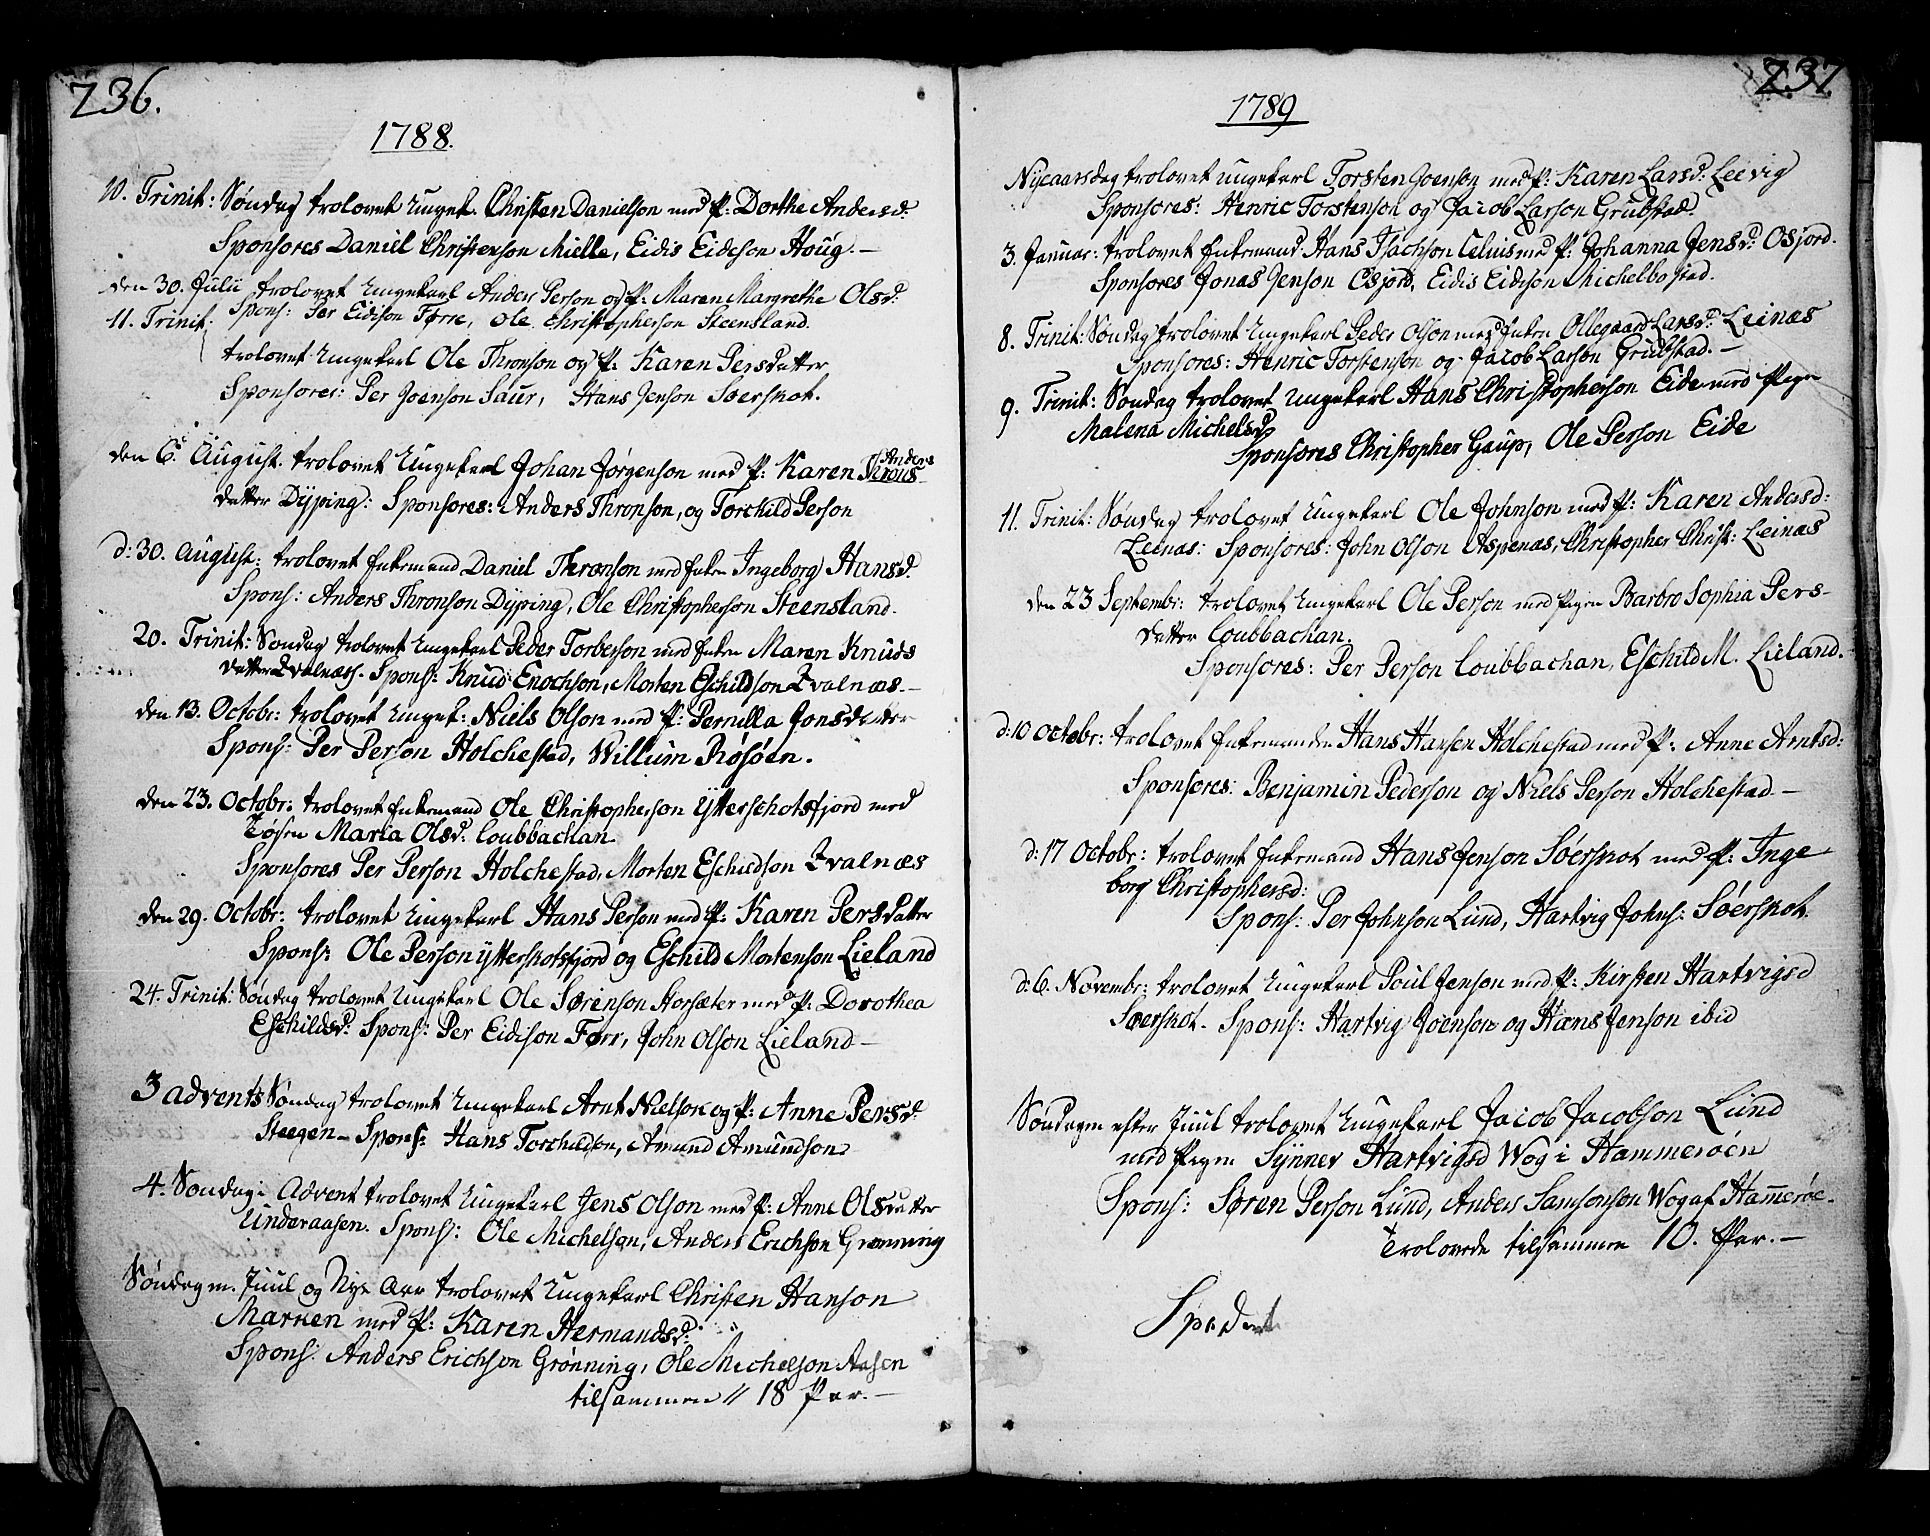 236.
1788.
10. Trinit: Søndag trolovet Ungek. Christen Danielson med P: Dorthe Andersd.
Sponsores Daniel Christenson Mielle, Eidis Eideson Houg. -
den 30. Julii trolovet Ungekarl Anders Person og P: Maren Margrethe Olsd.
Spons: Per Eidison Førre, Ole Christopherson Steensland.
11. Trinit:
trolovet Ungekarl Ole Thronson og P: Karen Persdatter
Sponsores: Per Joenson Saur, Hans Jenson Soerskot.
den 6. August. trolovet Ungekarl Johan Jørgenson med P: Karen Anders
datter Dÿping: Sponsores: Anders Thronson, og Torchild Person
d: 30. August: trolovet Enkemand Daniel Thronson med Enken Ingeborg Hansd.
Spons: Anders Thronson Dÿping, Ole Christopherson Steensland.
20. Trinit: Søndag trolovet Ungekarl Peder Torberson med Enken Maren Knuds
datter Qvalnæss. Spons: Knud Enochson, Morten Eschildson Qvalnæs. -
den 13. Octobr: trolovet Ungek: Niels Olson med P: Pernilla Jonsdatter
Spons: Per Person Holchestad, Willum Røsøen.
den 23. Octobr: trolovet Enkemand Ole Christopherson Ytterschotsfjord med
Tøsen Maria Olsd: Coubbachan
Sponsores Per Person Holchestad, Morten Eschildson Qvalnæs
den 29. Octobr: trolovet Ungekarl Hans Person med P: Karen Persdatter
Spons: Ole Person ytterskotsfjord og Eschild Mortenson Lieland
24. Trinit: Søndag trolovet Ungekarl Ole Sørenson Storsæter med P: Dorothea
Eschildsd: Spons: Per Eidison Førr, John Olson Lieland -
3 advents Søndag trolovet Ungekarl Arnt Nielson og P: Anne Persd.
Steegen - Spons: Hans Torchildson, Amund Amundson
4. Søndag i Advent trolovet Ungekarl Jens Olson med P: Anne Olsdatter
Underaasen. Spons: Ole Michelson, Anders Erichson Grønning
Søndag m. Juul og Nye Aar trolovet Ungekarl Christen Hanson
Marken med P: Karen Hermandsd:
Spons: Anders Erichson Grønning, Ole Michelson Aasen
tilsammen // 18 Par. -
237.
1789
Nyeaarsdag trolovet Ungekarl Torsten Joenson med P: Karen Larsd: Leevig
Sponsores: Henric Torstenson og Jacob Larson Grubstad.
3. Januar: trolovet Enkemand Hans Isachson Celius med P: Johanna Jensd: Osjord.
Sponsores Jonas Jenson Osjord, Eidis Eidison Michelbostad.
8. Trinit: Søndag trolovet Ungekarl Peder Olson med Enken Ollegaard Larsd: Leinæs
Sponsores: Henric Torstenson og Jacob Larson Grubstad. -
9. Trinit: Søndag trolovet Ungekarl Hans Christopherson Eide med Pigen
Malena Michelsd
Sponsores Christopher Gaup, Ole Person Eide
11. Trinit: Søndag trolovet Ungekarl Ole Johnson med P: Karen Andersd:
Leinæs: Sponsores: John Olson Aspenæs, Christopher Christ: Leinæs
den 23 Septembr: trolovet Ungekarl Ole Person med Pigen Barbro Sophia Pers-
datter Coubbachan.
Sponsores: Per Person Coubbachan, Eschild M. Lieland.
d: 10 Octobr: trolovet Enkemanden Hans Hansen Holchestad med P: Anne Arntsd:
Sponsores: Benjamin Pederson og Niels Person Holchestad -
d: 17 Octobr: trolovet Enkemand Hans Jenson Søerskot med P: Inge
borg Christophersd:
Spons: Per Johnson Lund, Hartvig Johns: Søerskot.
d: 6. Novembr: trolovet Ungekarl Poul Jenson med P: Kirsten Hartvigsd
Søerskot. Spons: Hartvig Joenson og Hans Jenson ibid
Søndagen efter Juul trolovet Ungekarl Jacob Jacobson Lund
med Pigen Synnev Hartvigsd Wog i Hammerøen
Spons: Søren Person Lund, Anders Samsonson Wog af Hamerøe.
Trolovede tilsammen 10. Par. -